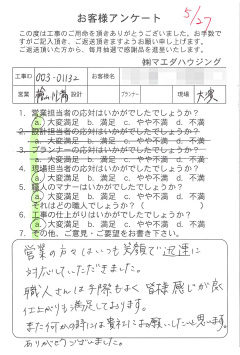 お客様アンケート
5/27
この度は工事のご用命を頂きありがとうございました。お手数で
すがご記入頂き、ご返送頂きますようお願い申し上げます。
ご返送頂いた方から、毎月抽選で感謝品を進呈いたします。
㈱マエダハウジング
工事ID 003-01132 お客様名
営業 設計 プランナー 現場
1. 営業担当者の応対はいかがでしたでしょうか?
a. 大変満足 b. 満足 c. やや不満 d. 不満
2. 設計担当者の応対はいかがでしたでしょうか?
a. 大変満足 b. 満足 c. やや不満 d. 不満
3. プランナーの応対はいかがでしたでしょうか?
a. 大変満足 b. 満足 c. やや不満 d. 不満
4. 現場担当者の応対はいかがでしたでしょうか?
a. 大変満足 b. 満足 c. やや不満 d. 不満
5. 職人のマナーはいかがでしたでしょうか?
a. 大変満足 b. 満足 c. やや不満 d. 不満
それはどの職人でしょうか?( )
6. 工事の仕上がりはいかがでしたでしょうか?
a. 大変満足 b. 満足 c. やや不満 d. 不満
7. その他 ご意見・ご要望をお書き下さい。
営業の方々はいつも笑顔で迅速に
対応していただきました。
職人さんは手際もよく皆様感じが良く
仕上がりも満足しております。
また何かの時には貴社にお願いしたいと思います。
ありがとうございました。